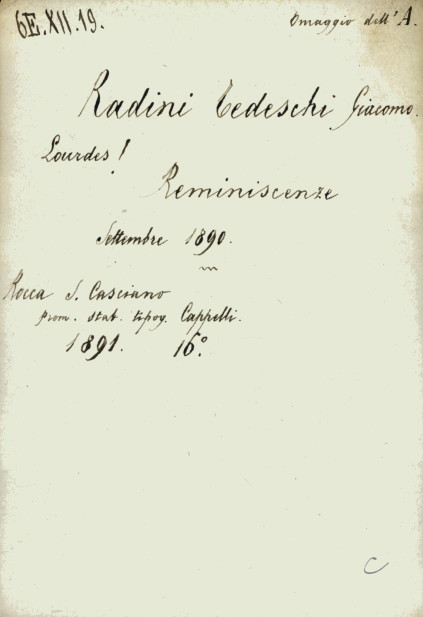 6E.XII.19.
Omaggio dell'A.
Radini Tedeschi Giacomo.
Lourdes!
Reminiscenze
Settembre 1890.
Rocca S. Casciano
Prom. stab. tipog. Cappelli.
1891. 16º.
C